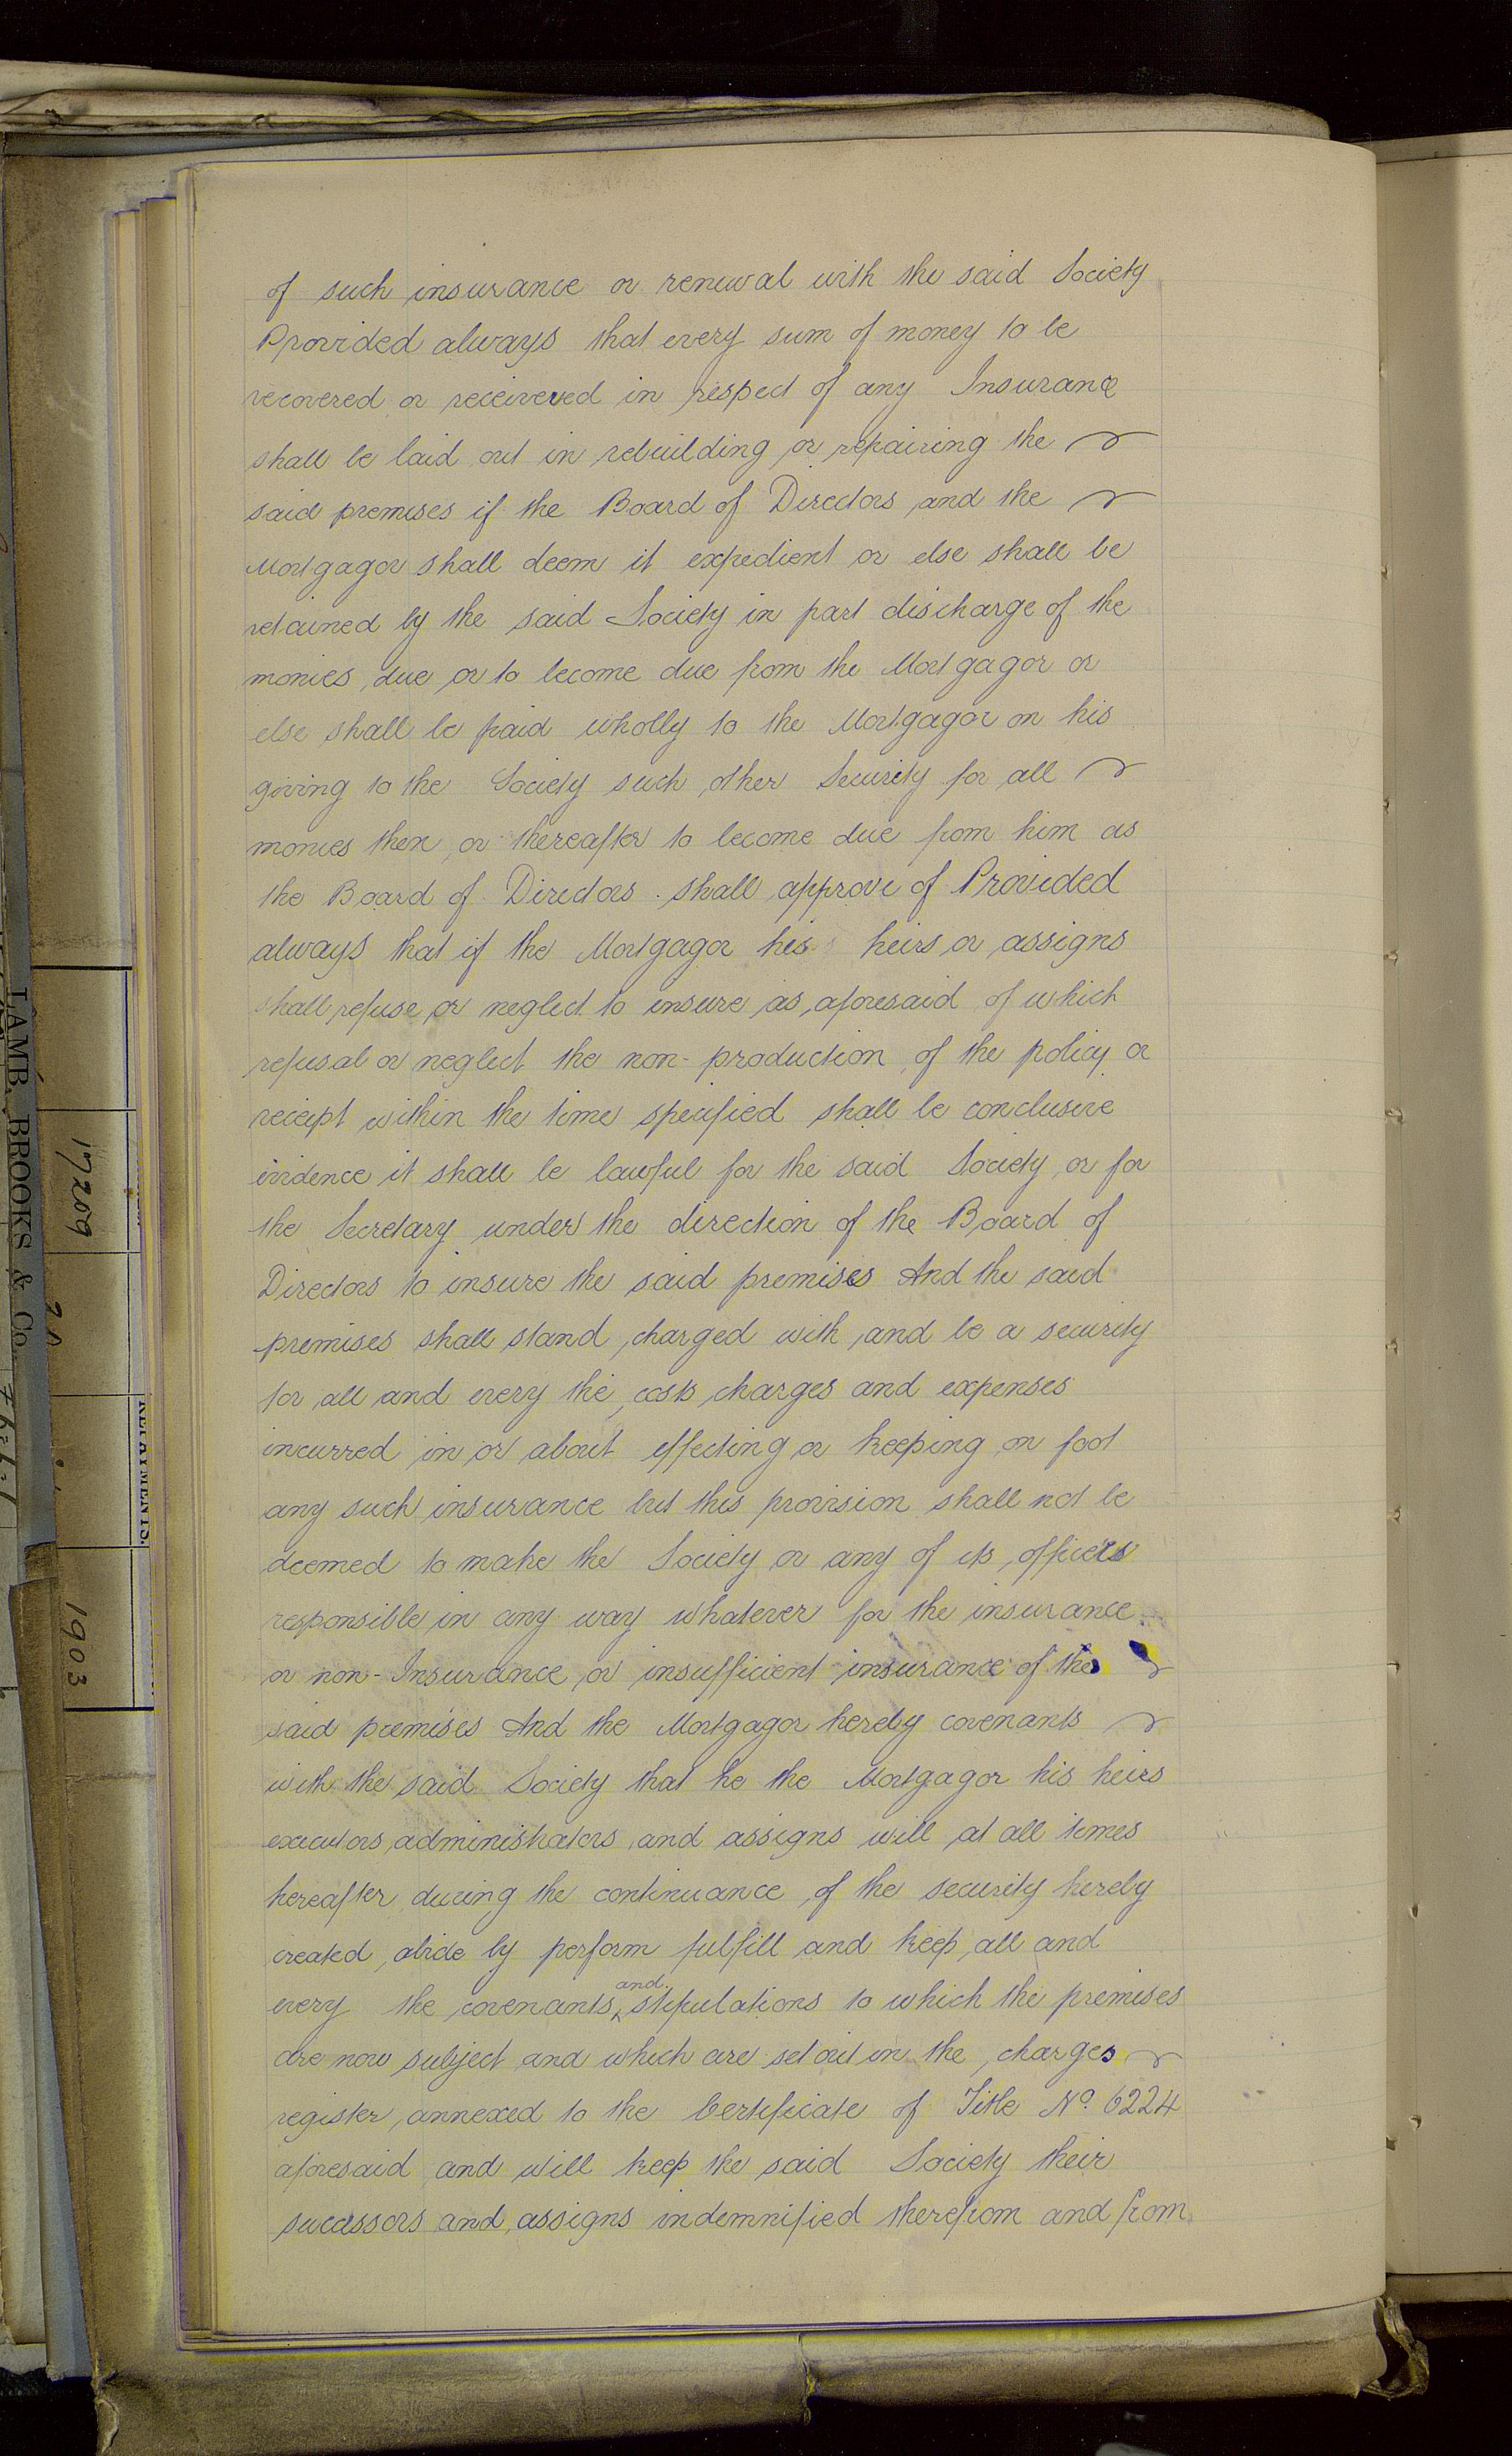 of such insurance or renewal with the said Society
Provided always that every sum of money to be
recovered or receivered in respect of any Insurance
shall be laid out in rebuilding or repairing the
said premises if the Board of Directors and the
Mortgagor shall deem it expedient or else shall be
retained by the said Society in part discharge of the
monies due or to become due from the Mortgagor or
else shall be paid wholly to the Mortgagor on his
giving to the Society such other Security for all
monies then or thereafter to become due from him as
the Board of Directors shall approve of Provided
always that if the Mortgagor his heirs or assigns
shall refuse or neglect to insure as aforesaid of which
refusal or neglect the non-production of the policy or
receipt within the time specified shall be conclusive
evidence it shall be lawful for the said Society or for
the Secretary under the direction of the Board of
Directors to insure the said premises And the said
premises shall stand charged with and be a security
for all and every the costs charges and expenses
incurred in or about effecting or keeping on foot
any such insurance but this provision shall not be
deemed to make the Society or any of its officers
responsible in any way whatever for the insurance
or non-Insurance or insufficient insurance of the
said premises And the Mortgagor hereby covenants
with the said Society that he the Mortgagor his heirs
executors administrators and assigns will at all times
hereafter during the continuance of the security hereby
created abide by perform fulfill and keep all and
every the covenants and stipulations to which the premises
are now subject and which are set out in the charges
register annexed to the Certificate of Title No. 6224
aforesaid and will keep the said Society their
successors and assigns indemnified therefrom and from
LAMB, BROOKS & Co.
17209
REPAYMENTS.
1903